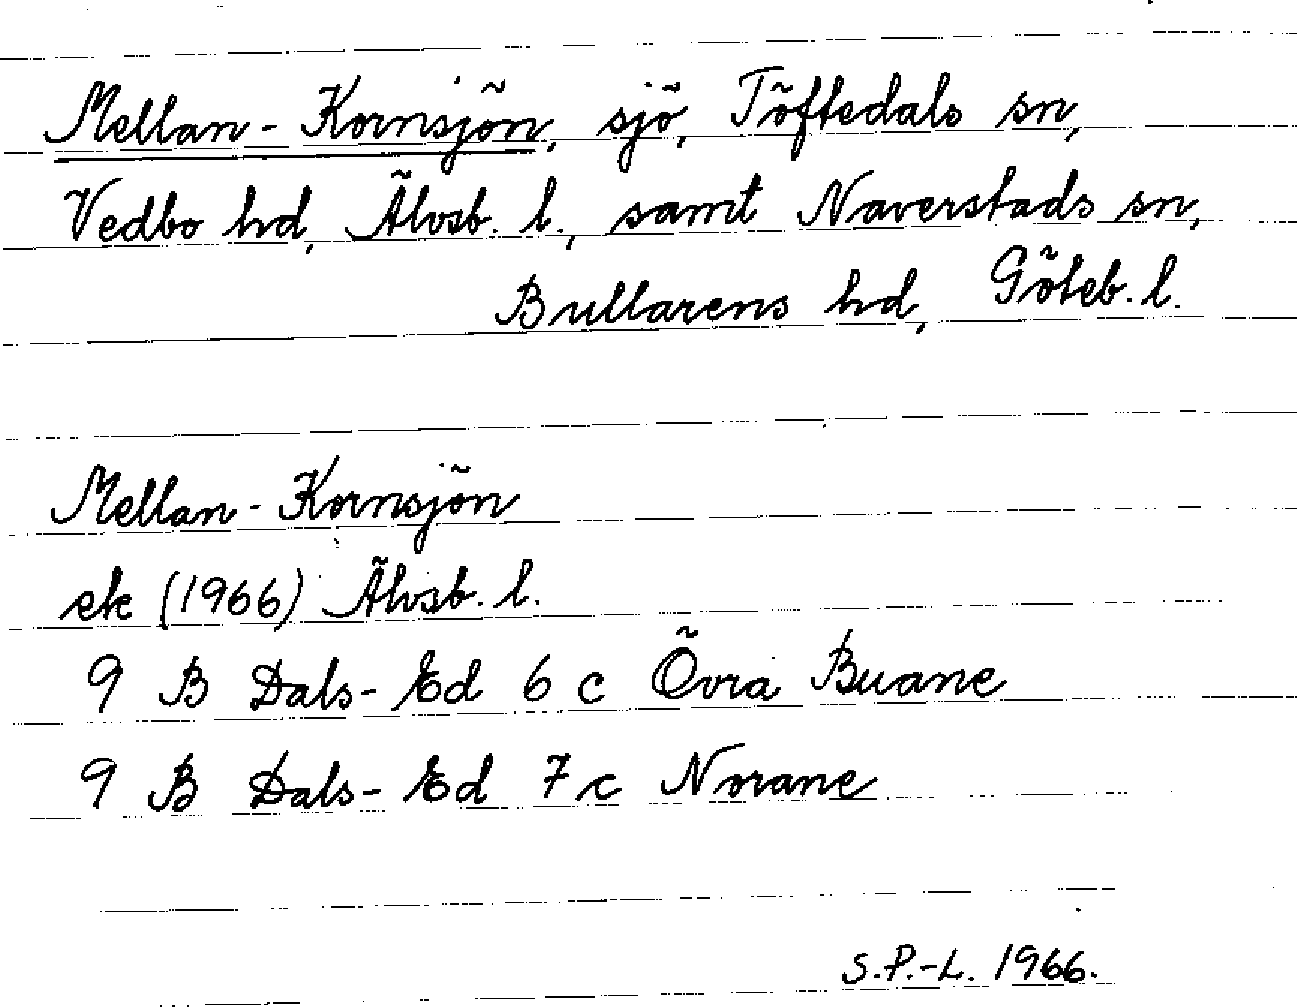 Mellan-Kornsjön, sjö, Töftedals sn,
Vedbo hd, Älvsb. l., samt Naverstads sn,
Bullarens hd, Göteb. l.
Mellan-Kornsjön
ek (1966) Älvsb. l.
9 B Dals-Ed 6 c Övra Buane
9 B Dals-Ed 7 c Norane
S.P.-L. 1966.